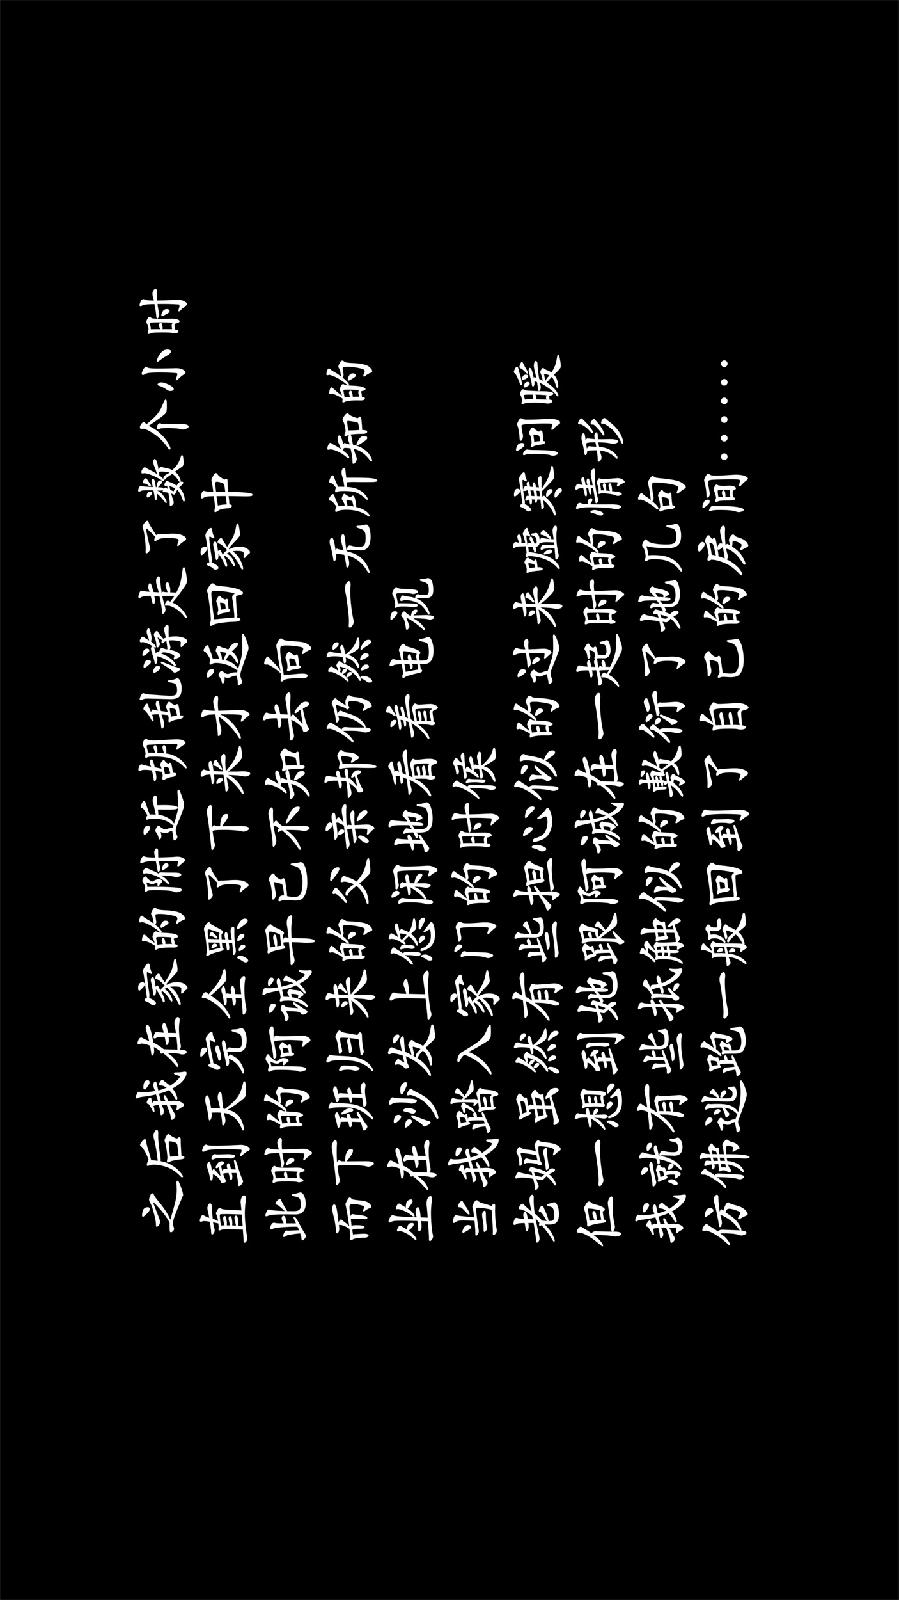 之后我在家的附近胡乱游走了数个小时
直到天完全黑了下来才返回家中
此时的阿诚早已不知去向
而下班归来的父亲却仍然一无所知的
坐在沙发上悠闲地看着电视
当我踏入家门的时候
老妈虽然有些担心似的过来嘘寒问暖
但一想到她跟阿诚在一起时的情形
我就有些抵触似的敷衍了她几句
仿佛逃跑一般回到了自己的房间……